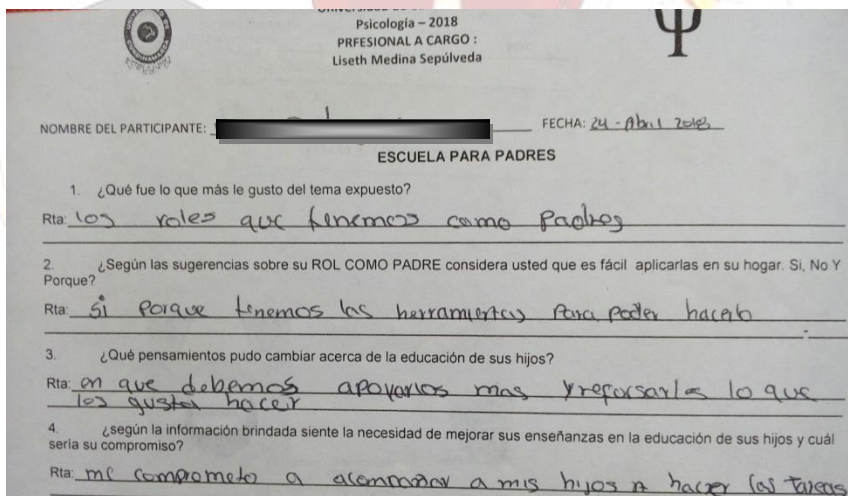 Psicología – 2018
PRFESIONAL A CARGO :
Liseth Medina Sepúlveda
NOMBRE DEL PARTICIPANTE: FECHA: 24 - Abril 2018
ESCUELA PARA PADRES
1. ¿Qué fue lo que más le gusto del tema expuesto?
Rta: los roles que tenemos como Padres
2. ¿Según las sugerencias sobre su ROL COMO PADRE considera usted que es fácil aplicarlas en su hogar. Si, No Y
Porque?
Rta: si porque tenemos las herramientas para poder hacerlo
3. ¿Qué pensamientos pudo cambiar acerca de la educación de sus hijos?
Rta: en que debemos apoyarlos mas y reforsarles lo que
les gusta hacer
4. ¿según la información brindada siente la necesidad de mejorar sus enseñanzas en la educación de sus hijos y cuál
sería su compromiso?
Rta: me comprometo a acompañar a mis hijos a hacer las tareas